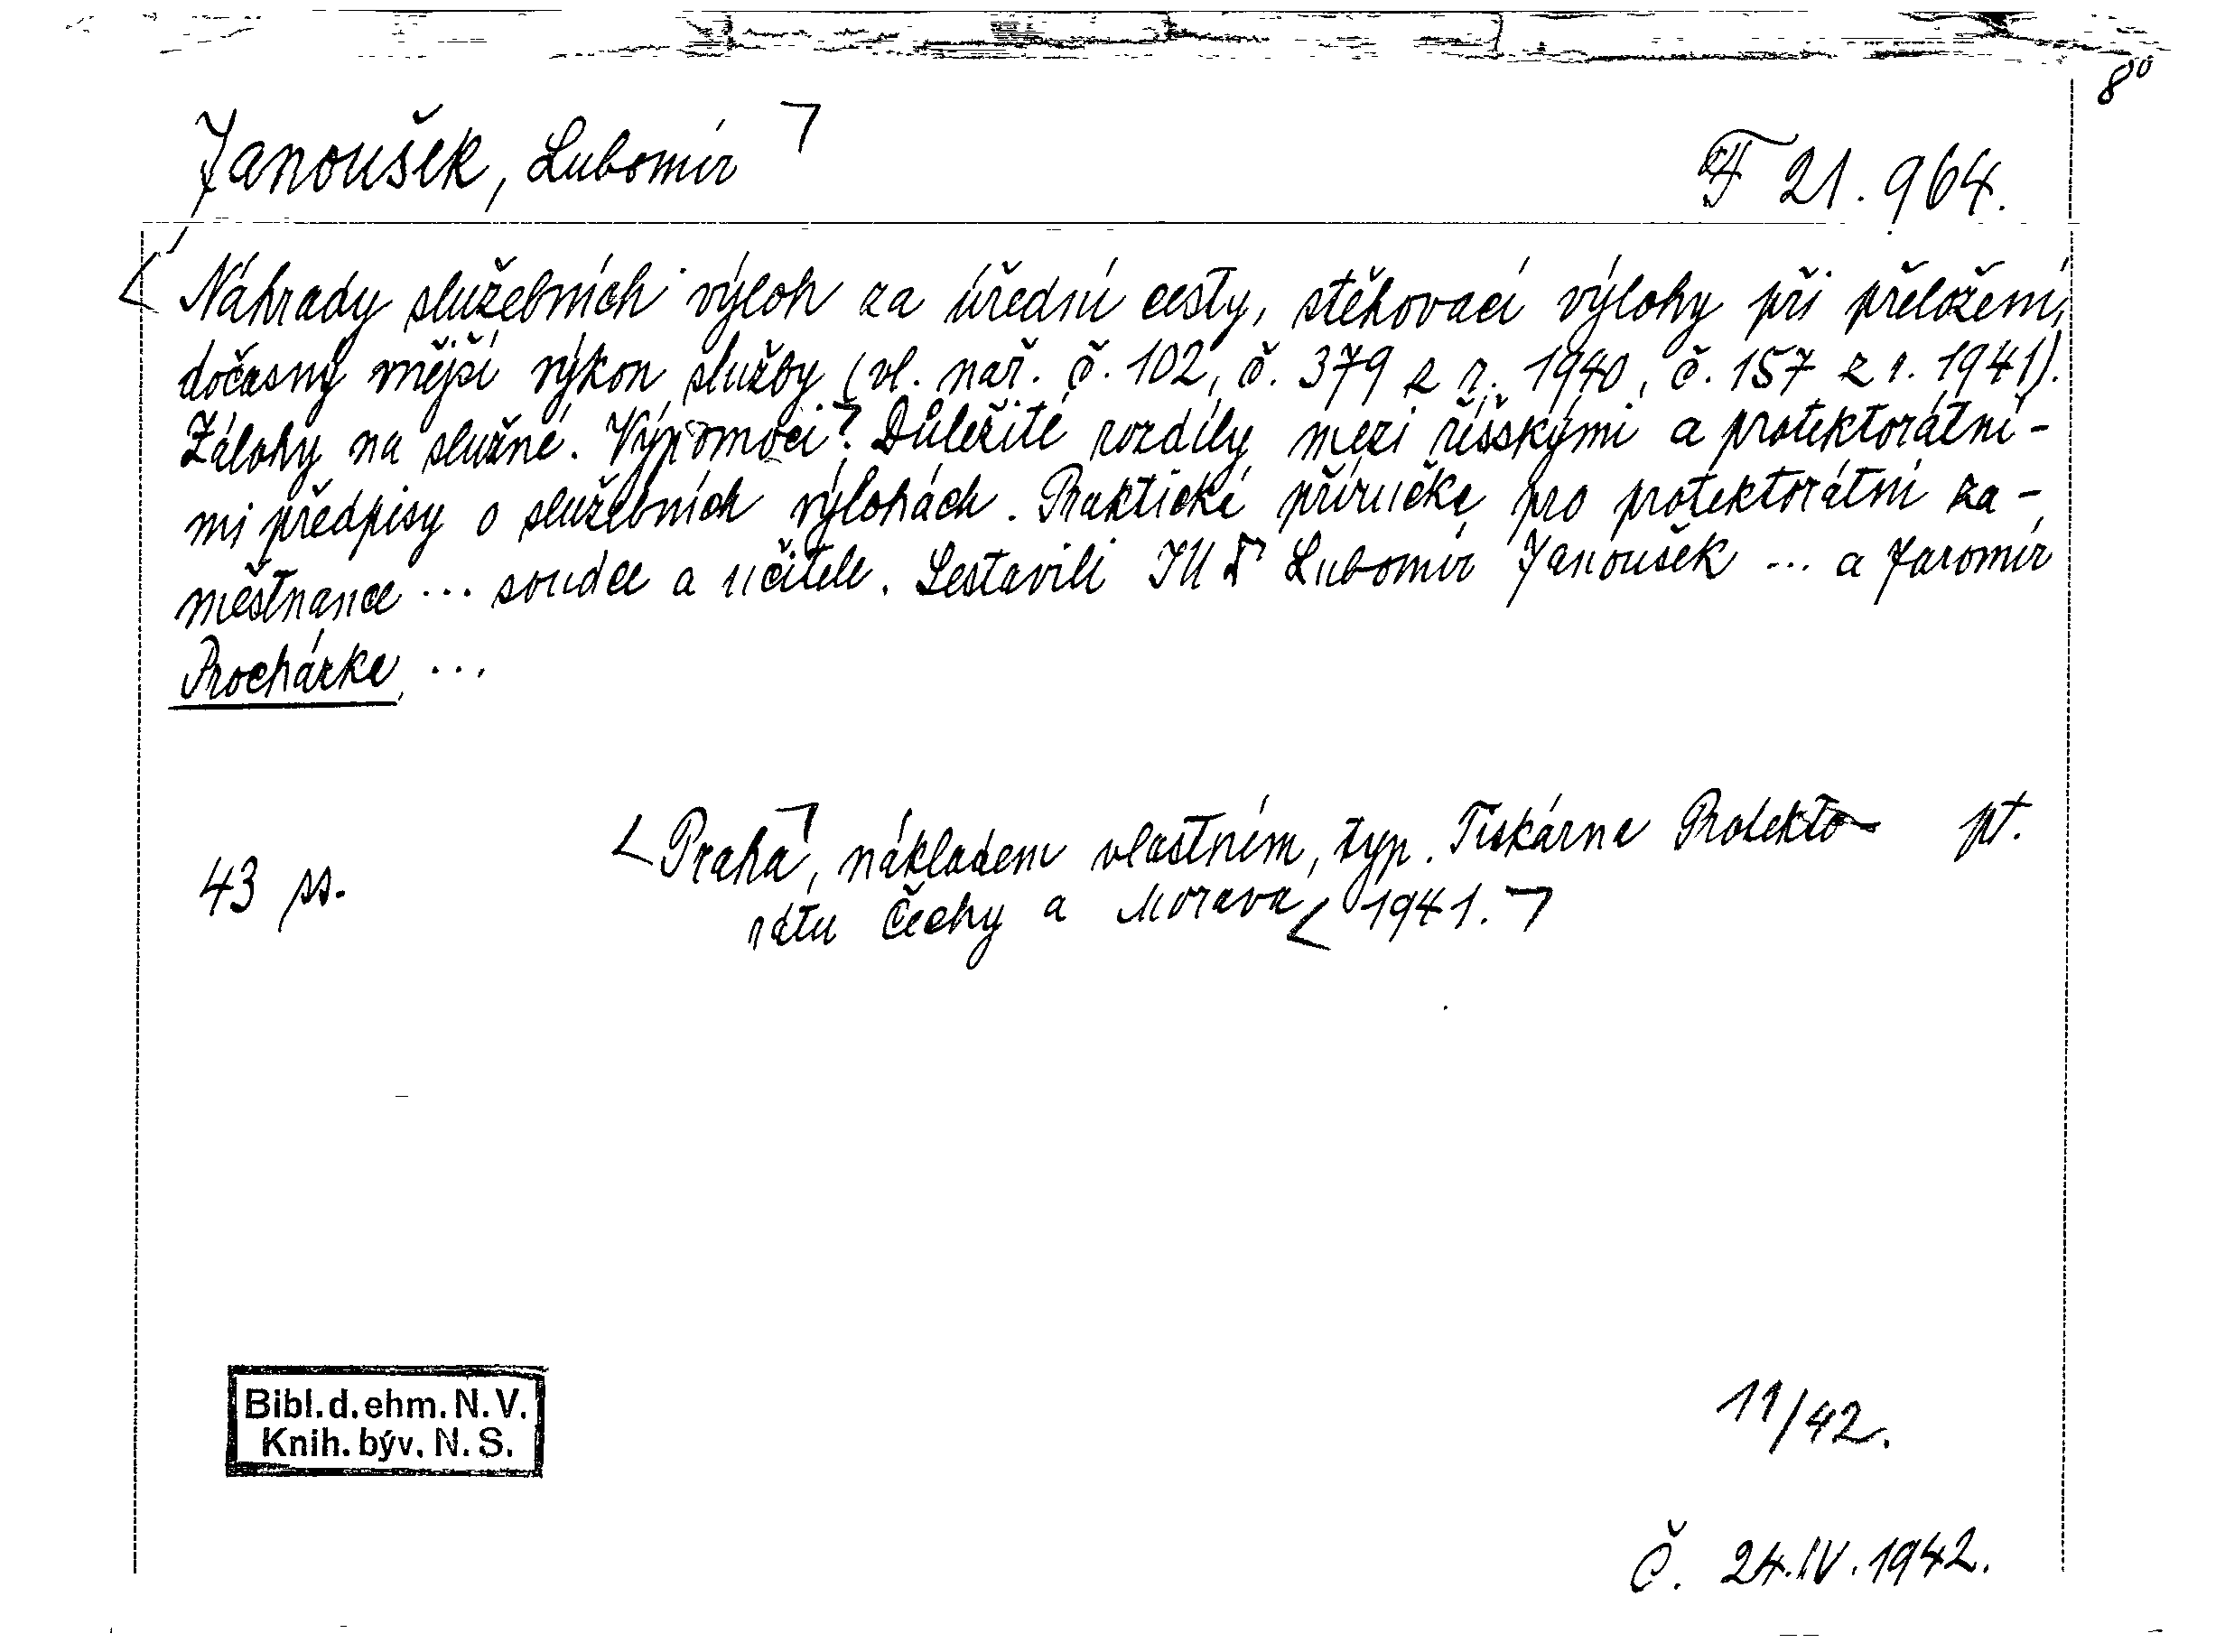 8°
Janoušek, Lubomír
F 21.964.
Náhrady služebních výloh za úřední cesty, stěhovací výlohy při přeložení,
dočasný vnější výkon služby (vl. nař. č. 102, č. 379 z r. 1940, č. 157 z r. 1941).
Zálohy na služné. Výpomoci. Důležité rozdíly mezi říšskými a protektorátní-
mi předpisy o služebních výlohách. Praktická příručka pro protektorátní za-
městnance ... soudce a učitele. Sestavili JUDr Lubomír Janoušek ... a Jaromír
Procházka, ...
43 ss.
Praha, nákladem vlastním, typ. Tiskárna Protekto- pt.
rátu Čechy a Morava 1941.
Bibl. d. ehm. N. V.
Knih. býv. N. S.
11/42.
Č. 24.IV.1942.